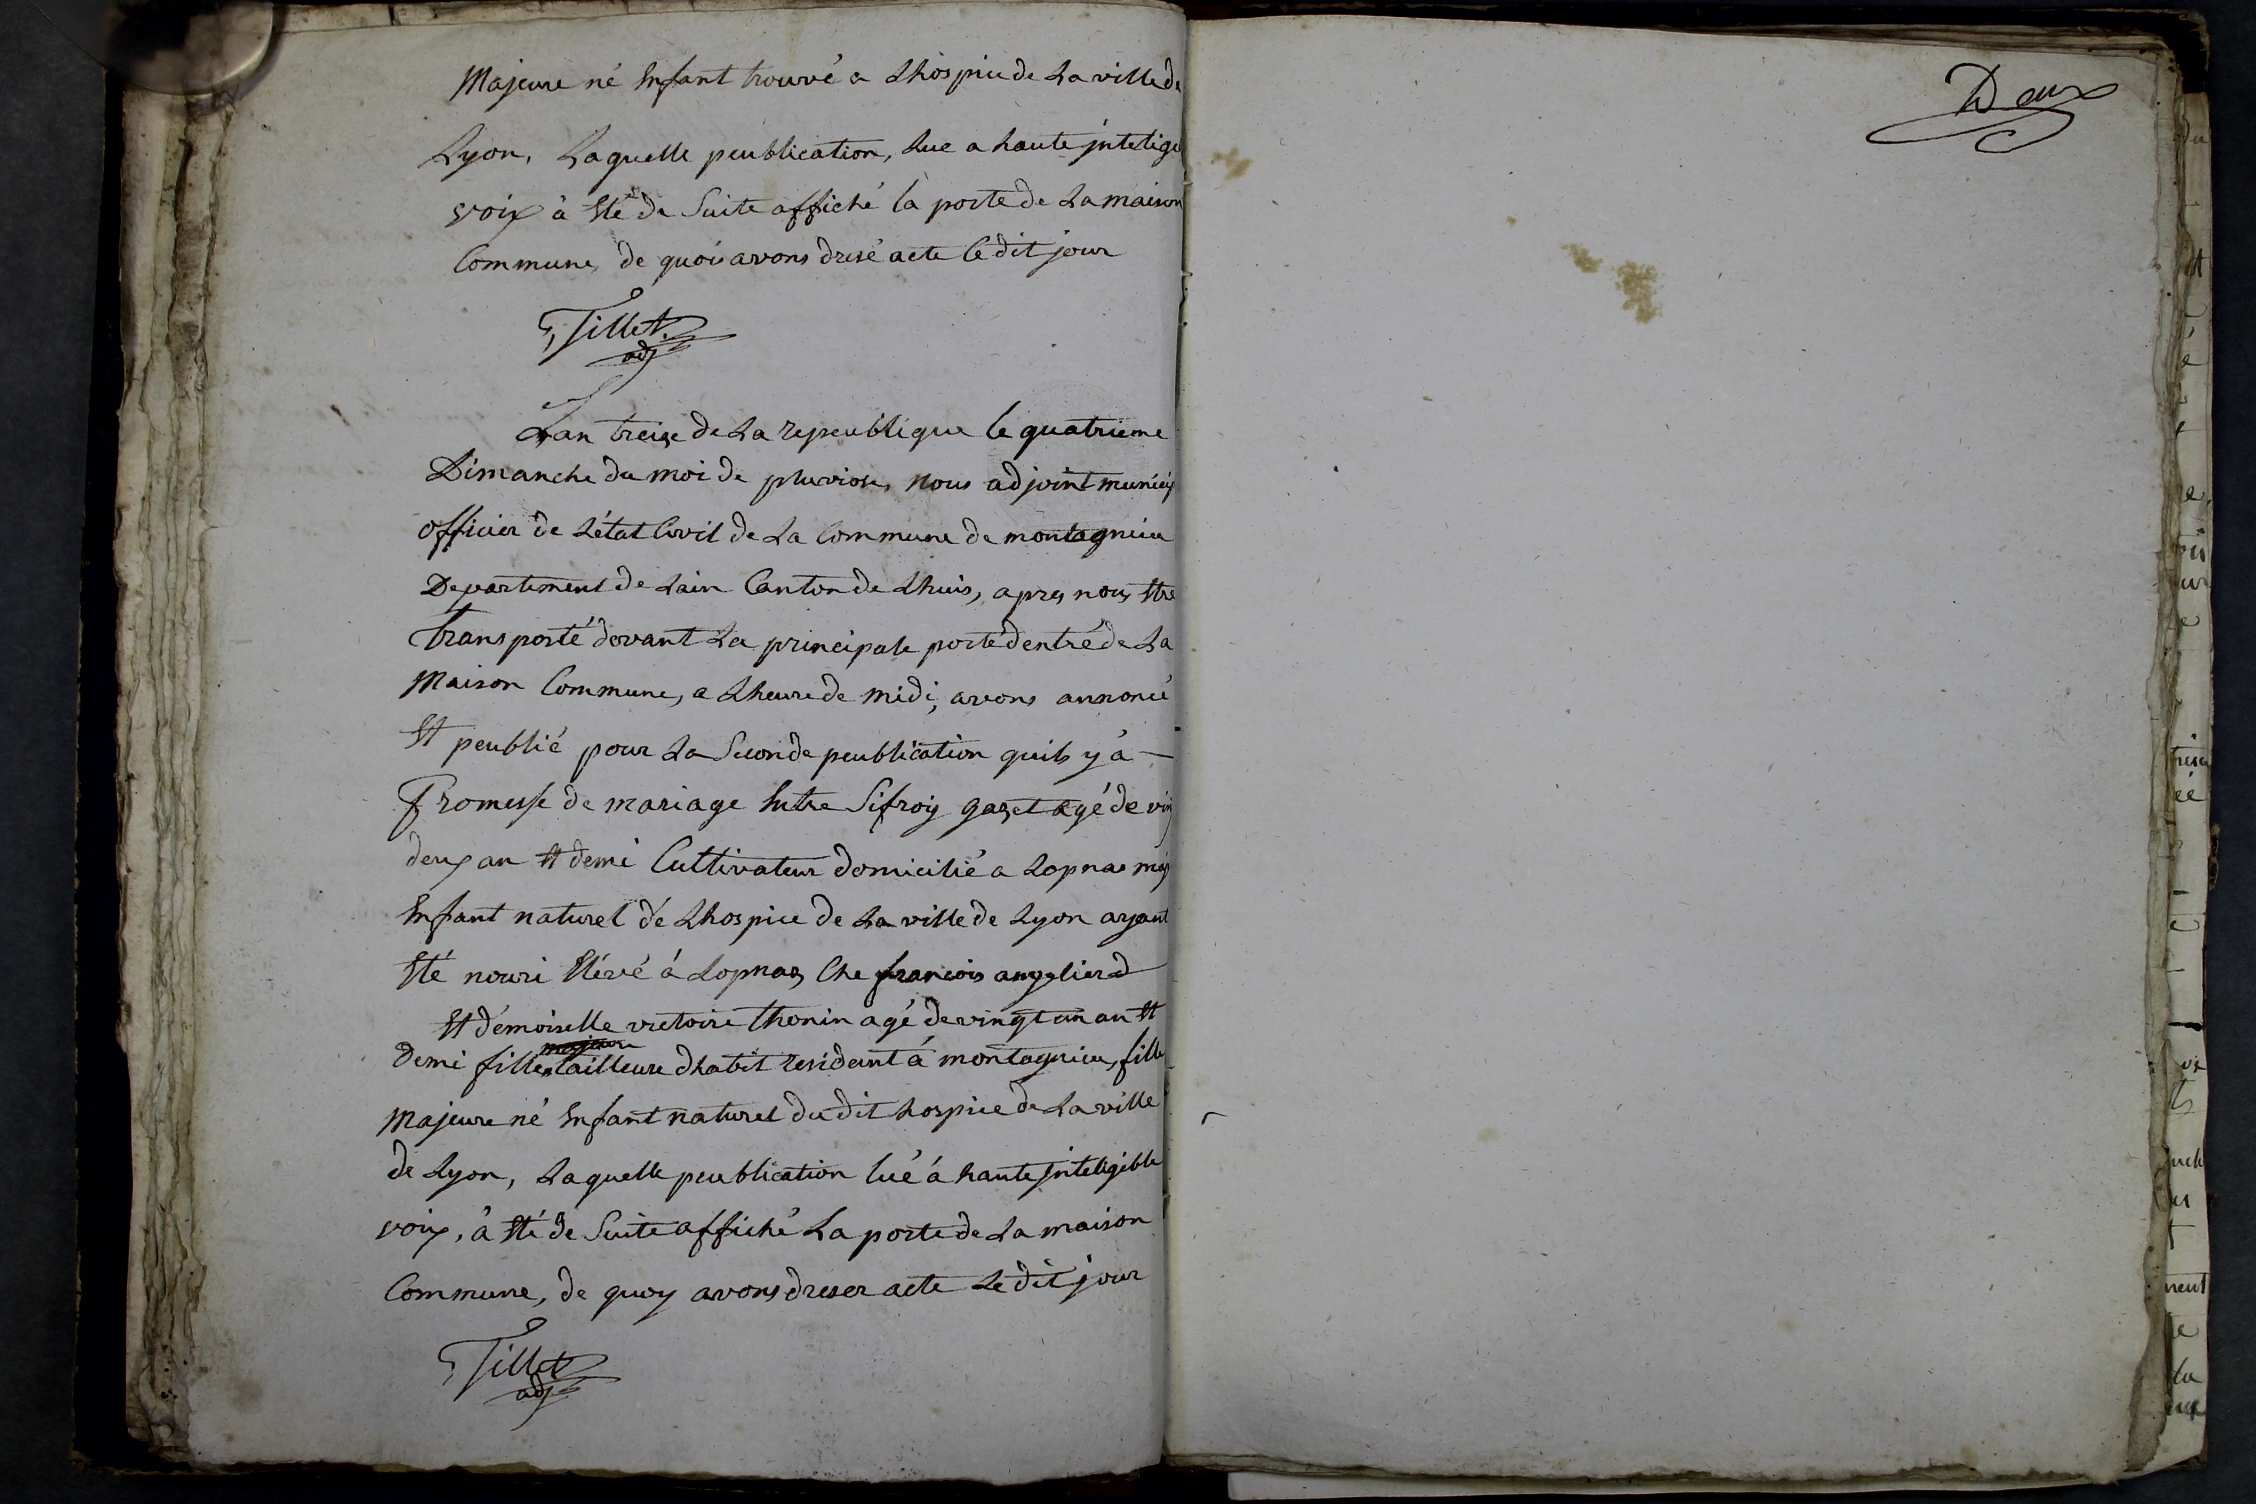 Majeure né Enfant trouvé a Lhospice de La ville de
Lyon, Laquelle peublication, Lue a haute intelige
voix à Eté de Suite affiché là porte de La maison
Commune, de quoi avons dresé acte le dit jour
Tillet
adj
Lan treize de La republique le quatrieme
Dimanche du moi de pluviose, nous adjoint municip
officier de L'état Civil de La Commune de montagnieu
Departement de Lain Canton de Lhuis, apres nous Etre
Transporté devant La principale porte dentré de La
Maison Commune, a Lheure de midi, avons annoncé
Et peublié pour La Seconde peublication quils y à
Promesse de mariage Entre Sifroy gazet agé de vin
deux an Et demi Cultivateur domicilié a Lopnas maj
Enfant naturel de Lhospice de La ville de Lyon ayant
Eté nouri Elévé à Lopnas, Che francois anglierd
Et démoiselle victoire thonin agé de vingt un an Et
majeure
demi fille tailleure dhabit residant à montagnieu, fille
Majeure né Enfant naturel du dit hospice de La ville
de Lyon, Laquelle peublication lué à haute inteligible
voix, à Eté de Suite affiché La porte de La maison
Commune, de quoy avons dreser acte Le dit jour
Tillet
adj
Deux